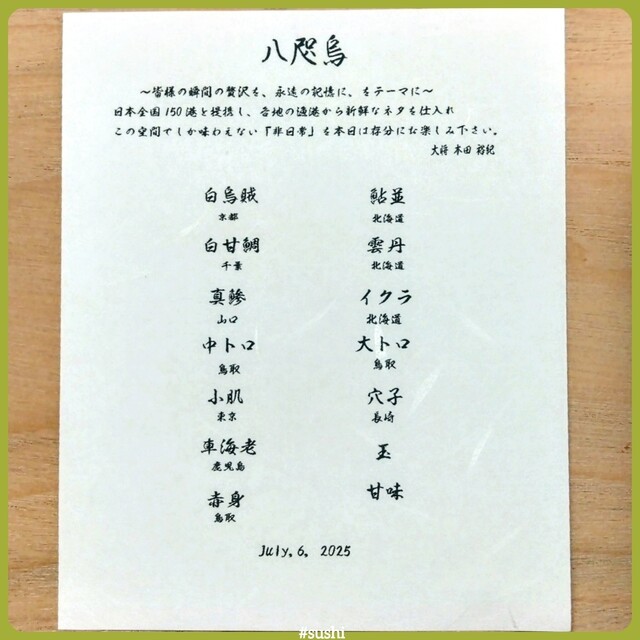 八咫烏
～皆様の瞬間の贅沢を、永遠の記憶に、をテーマに～
日本全国150港と提携し、各地の漁港から新鮮なネタを仕入れ
この空間でしか味わえない「非日常」を本日は存分にお楽しみ下さい。
大将 本田 裕紀
白烏賊
京都
白甘鯛
千葉
真鯵
山口
中トロ
鳥取
小肌
東京
車海老
鹿児島
赤身
鳥取
鮎並
北海道
雲丹
北海道
イクラ
北海道
大トロ
鳥取
穴子
長崎
玉
甘味
July. 6. 2025
#sushi